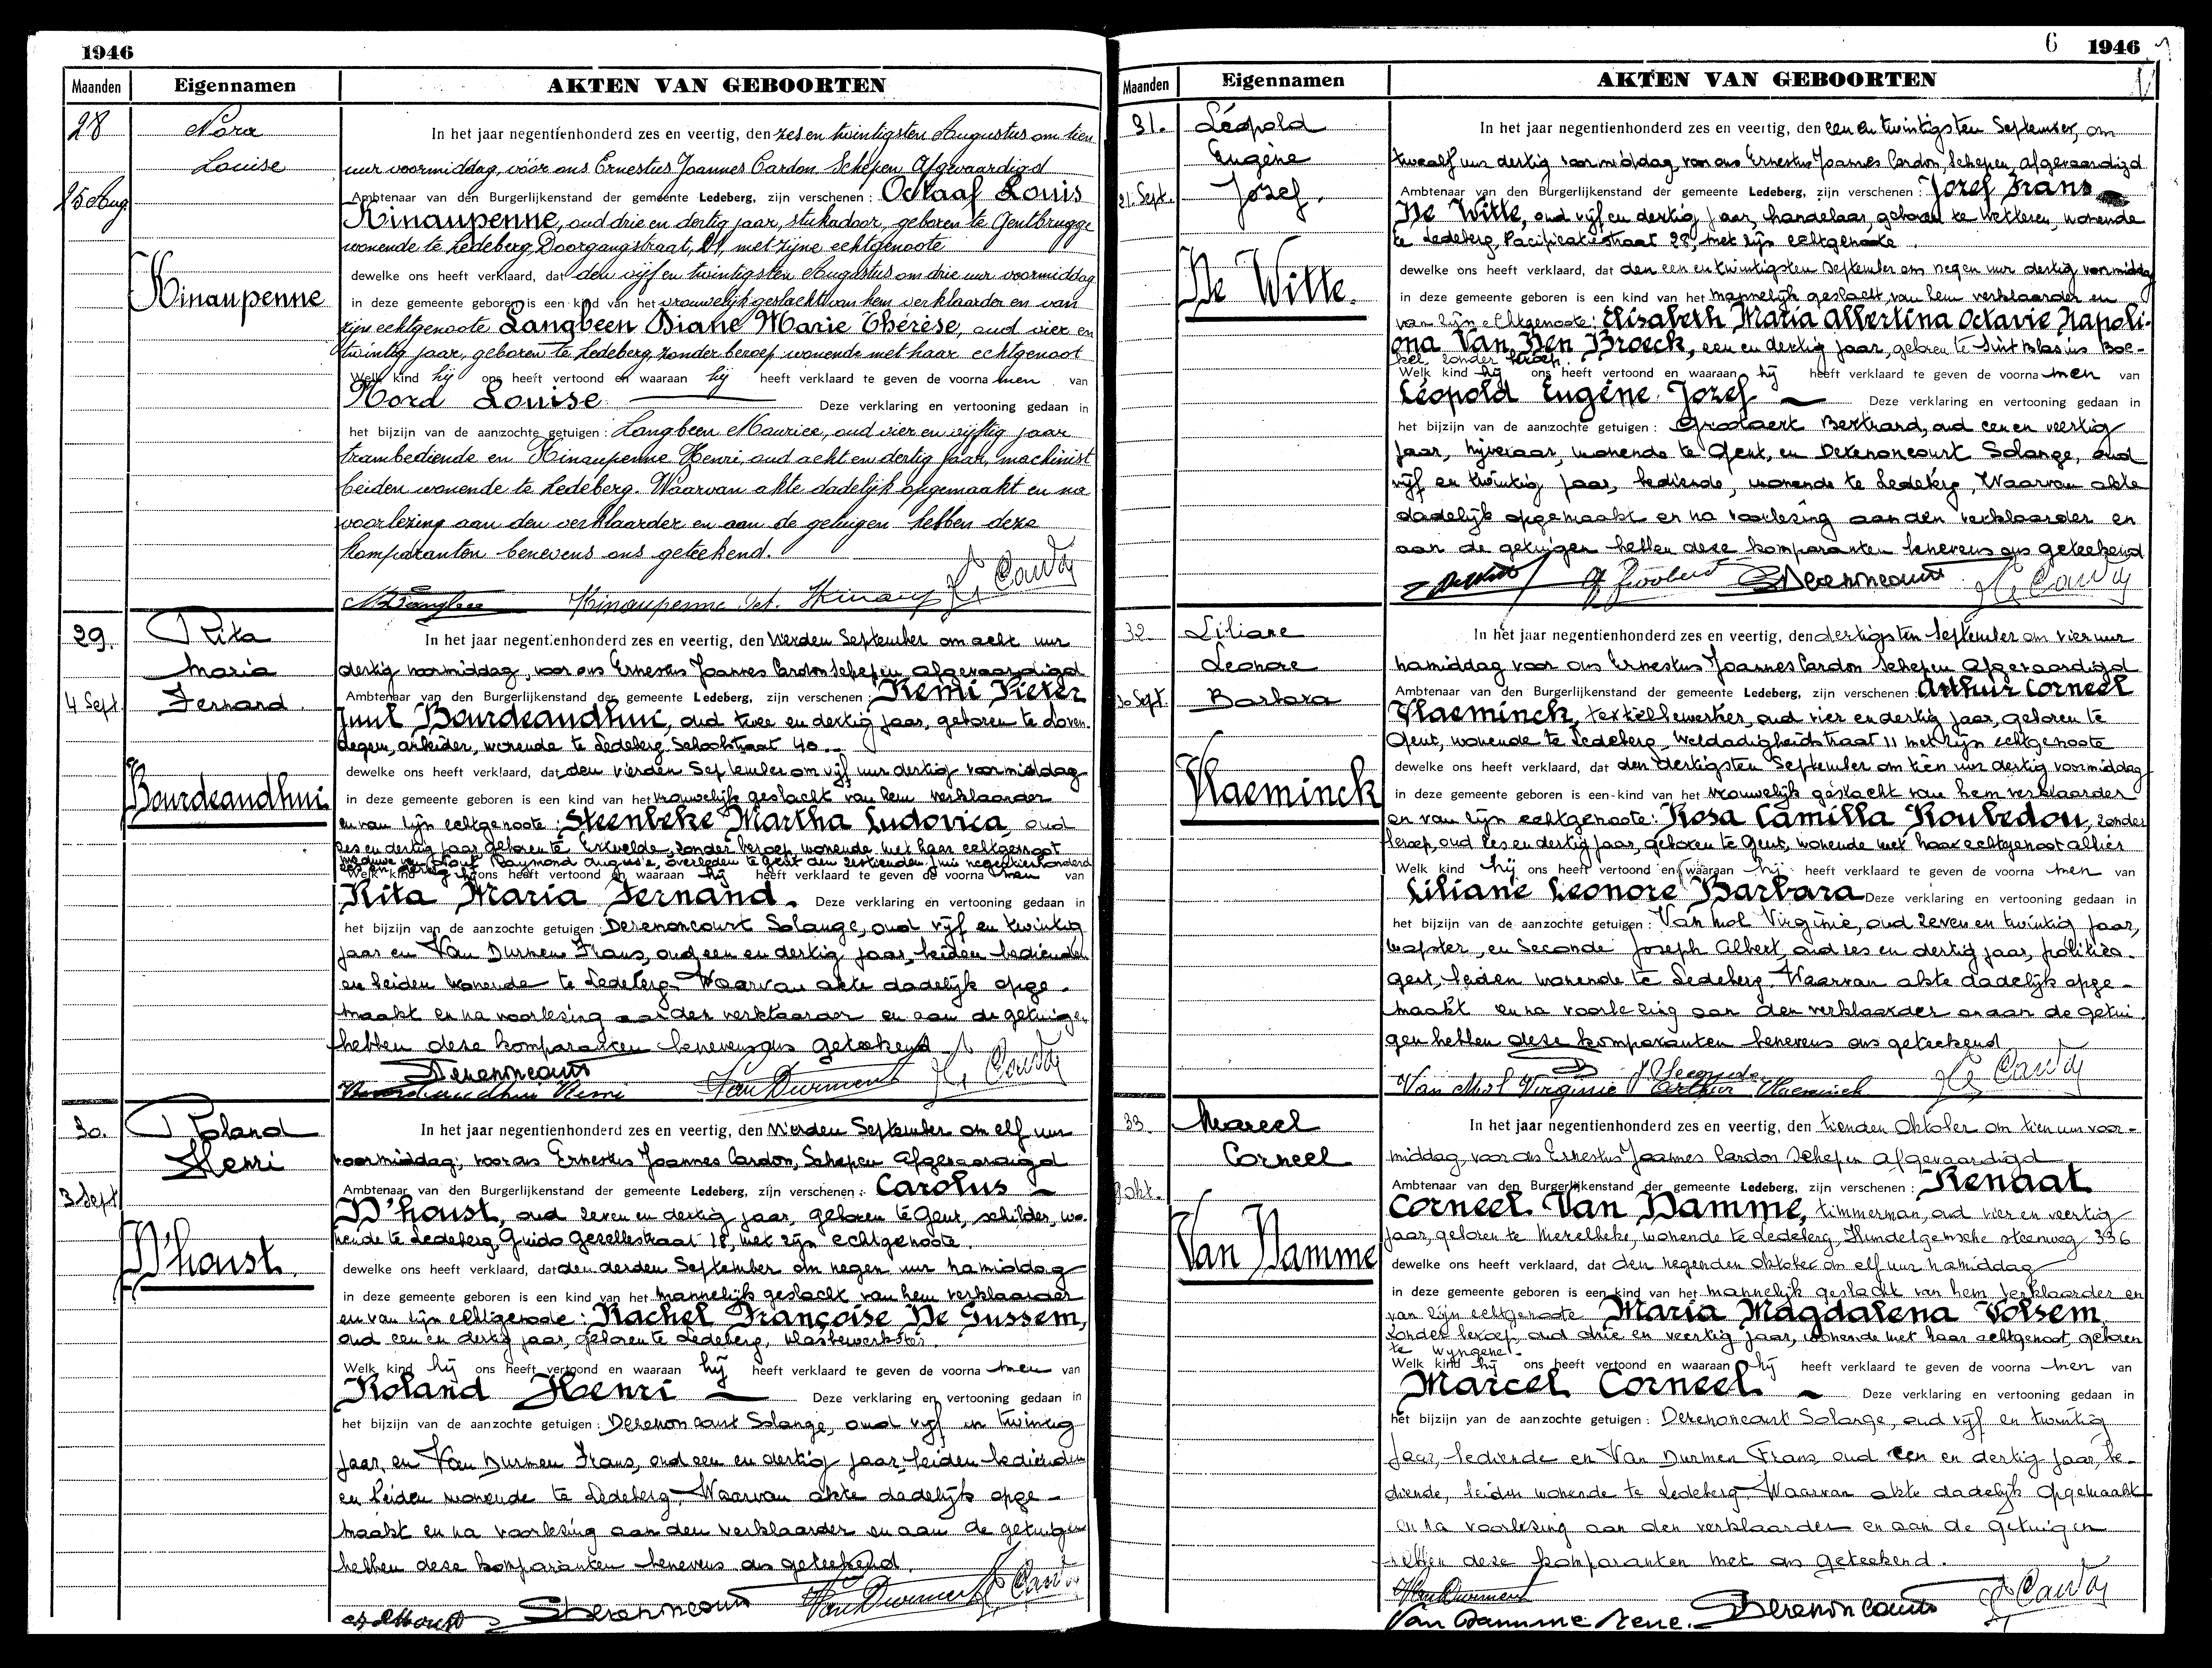 1946
Maanden Eigennamen AKTEN VAN GEBOORTEN
28
Nora
Louise
25 Aug.
Hinaupenne
In het jaar negentienhonderd zes en veertig, den zes en twintigsten Augustus om tien
uur voormiddag, vóór ons Ernestus Joannes Cardon Schepen Afgevaardigd
Ambtenaar van den Burgerlijkenstand der gemeente Ledeberg, zijn verschenen : Octaaf Louis
Hinaupenne, oud drie en dertig jaar, stukadoor, geboren te Gentbrugge
wonende te Ledeberg, Doorgangstraat, 21, met zijne echtgenoote
dewelke ons heeft verklaard, dat den vijf en twintigsten Augustus om drie uur voormiddag
in deze gemeente geboren is een kind van het vrouwelijk geslacht van hem verklaarder en van
zijn echtgenoote Langbeen Diane Marie Thérèse, oud vier en
twintig jaar, geboren te Ledeberg, zonder beroep wonende met haar echtgenoot
Welk kind hij ons heeft vertoond en waaraan hij heeft verklaard te geven de voorna men van
Nora Louise Deze verklaring en vertooning gedaan in
het bijzijn van de aanzochte getuigen : Langbeen Maurice, oud vier en vijftig jaar
trambediende en Hinaupenne Henri, oud acht en dertig jaar, machinist
beiden wonende te Ledeberg. Waarvan akte dadelijk opgemaakt en na
voorlezing aan den verklaarder en aan de getuigen hebben deze
komparanten benevens ons geteekend.
Hinaupenne Oct. Hinaup
29.
Rita
Maria
Fernand
4 Sept.
Bourdeaudhui
In het jaar negentienhonderd zes en veertig, den Vierden September om acht uur
dertig voormiddag, voor ons Ernestus Joannes Cardon Schepen Afgevaardigd
Ambtenaar van den Burgerlijkenstand der gemeente Ledeberg, zijn verschenen : Remi Pieter
Juul Bourdeaudhui, oud twee en dertig jaar, geboren te Loven-
degem, arbeider, wonende te Ledeberg Schoolstraat 40
dewelke ons heeft verklaard, dat den vierden September om vijf uur dertig voormiddag
in deze gemeente geboren is een kind van het vrouwelijk geslacht van hem verklaarder
en van zijn echtgenoote : Steenbeke Martha Ludovica, oud
zes en dertig jaar geboren te Ertvelde, zonder beroep wonende met haar echtgenoot
Raymond overleden te Gent den zestienden Juni negentienhonderd
Welk kind hij ons heeft vertoond en waaraan hij heeft verklaard te geven de voorna men van
Rita Maria Fernand. Deze verklaring en vertooning gedaan in
het bijzijn van de aanzochte getuigen : Derenoncourt Solange, oud vijf en twintig
jaar en Van Durmen Frans, oud een en dertig jaar, beiden bedienden
en beiden wonende te Ledeberg. Waarvan akte dadelijk opge-
maakt en na voorlezing aan den verklaarder en aan de getuigen
hebben deze komparanten benevens ons geteekend
Derenoncourt
Bourdeaudhui Remi
30.
Roland
Henri
3 Sept
D'houst.
In het jaar negentienhonderd zes en veertig, den Vierden September om elf uur
voormiddag, voor ons Ernestus Joannes Cardon, Schepen Afgevaardigd
Ambtenaar van den Burgerlijkenstand der gemeente Ledeberg, zijn verschenen : Carolus
D'houst, oud zeven en dertig jaar, geboren te Gent, schilder, wo-
nende te Ledeberg, Guido Gezellestraat 18, met zijn echtgenoote.
dewelke ons heeft verklaard, dat den derden September om negen uur namiddag
in deze gemeente geboren is een kind van het mannelijk geslacht van hem verklaarder
en van zijn echtgenoote : Rachel Françoise De Gussem,
oud een en dertig jaar, geboren te Ledeberg, vlasbewerkster.
Welk kind hij ons heeft vertoond en waaraan hij heeft verklaard te geven de voorna men van
Roland Henri Deze verklaring en vertooning gedaan in
het bijzijn van de aanzochte getuigen : Derenoncourt Solange, oud vijf en twintig
jaar, en Van Durmen Frans, oud een en dertig jaar, beiden bedienden
en beiden wonende te Ledeberg. Waarvan akte dadelijk opge-
maakt en na voorlezing aan den verklaarder en aan de getuigen
hebben deze komparanten benevens ons geteekend.
Derenoncourt
6 1946
Maanden Eigennamen AKTEN VAN GEBOORTEN
31.
Léopold
Eugène
Jozef.
21 Sept.
De Witte.
In het jaar negentienhonderd zes en veertig, den een en twintigsten September, om
twaalf uur dertig voormiddag voor ons Ernestus Joannes Cardon, Schepen, Afgevaardigd
Ambtenaar van den Burgerlijkenstand der gemeente Ledeberg, zijn verschenen : Jozef Frans
De Witte, oud vijf en dertig jaar, handelaar, geboren te Wetteren, wonende
te Ledeberg, Pacificatiestraat 28, met zijn echtgenoote.
dewelke ons heeft verklaard, dat den een en twintigsten September om negen uur dertig voormiddag
in deze gemeente geboren is een kind van het mannelijk geslacht, van hem verklaarder en
van zijn echtgenoote : Elisabeth Maria Albertina Octavie Napoli-
ona Van Den Broeck, een en dertig jaar, geboren te Sint Blasius Boe-
kel, zonder beroep.
Welk kind hij ons heeft vertoond en waaraan hij heeft verklaard te geven de voorna men van
Léopold Eugéne Jozef Deze verklaring en vertooning gedaan in
het bijzijn van de aanzochte getuigen : Grootaert Bertrand, oud een en veertig
jaar, nijveraar, wonende te Gent, en Derenoncourt Solange, oud
vijf en twintig jaar, bediende, wonende te Ledeberg, Waarvan akte
dadelijk opgemaakt en na voorlezing aan den verklaarder en
aan de getuigen hebben deze komparanten benevens ons geteekend
Derenoncourt
32.
Liliane
Leonore
Barbara
30 Sept.
Vlaeminck
In het jaar negentienhonderd zes en veertig, den dertigsten September om vier uur
namiddag voor ons Ernestus Joannes Cardon Schepen Afgevaardigd
Ambtenaar van den Burgerlijkenstand der gemeente Ledeberg, zijn verschenen : Arthur Corneel
Vlaeminck, textielbewerker, oud vier en dertig jaar, geboren te
Gent, wonende te Ledeberg Weldadigheidstraat 11 met zijn echtgenoote
dewelke ons heeft verklaard, dat den dertigsten September om tien uur dertig voormiddag
in deze gemeente geboren is een kind van het vrouwelijk geslacht van hem verklaarder
en van zijn echtgenoote : Rosa Camilla Roubedou, zonder
beroep, oud zes en dertig jaar, geboren te Gent, wonende met haar echtgenoot alhier
Welk kind hij ons heeft vertoond en waaraan hij heeft verklaard te geven de voorna men van
Liliane Leonore Barbara Deze verklaring en vertooning gedaan in
het bijzijn van de aanzochte getuigen : Van Mol Virginie, oud zeven en twintig jaar,
naaister, en Seconde Joseph Albert, oud zes en dertig jaar, politiea-
gent, beiden wonende te Ledeberg. Waarvan akte dadelijk opge-
maakt en na voorlezing aan den verklaarder en aan de getui-
gen hebben deze komparanten benevens ons geteekend
Van Mol Virginie J Seconde Arthur Vlaeminck
33.
Marcel
Corneel
9 okt.
Van Damme
In het jaar negentienhonderd zes en veertig, den tienden Oktober om tien uur voor-
middag voor ons Ernestus Joannes Cardon Schepen Afgevaardigd
Ambtenaar van den Burgerlijkenstand der gemeente Ledeberg, zijn verschenen : Renaat
Corneel Van Damme, timmerman, oud vier en veertig
jaar, geboren te Merelbeke, wonende te Ledeberg, Hundelgemsche steenweg 336
dewelke ons heeft verklaard, dat den negenden Oktober om elf uur namiddag
in deze gemeente geboren is een kind van het mannelijk geslacht van hem verklaarder en
van zijn echtgenoote Maria Magdalena Volsem,
zonder beroep oud drie en veertig jaar, wonende met haar echtgenoot, geboren
te Wyngene.
Welk kind hij ons heeft vertoond en waaraan hij heeft verklaard te geven de voorna men van
Marcel Corneel Deze verklaring en vertooning gedaan in
het bijzijn van de aanzochte getuigen : Derenoncourt Solange, oud vijf en twintig
jaar, bediende en Van Durmen Frans oud een en dertig jaar, be-
diende, beiden wonende te Ledeberg. Waarvan akte dadelijk opgemaakt
en na voorlezing aan den verklaarder en aan de getuigen
hebben deze komparanten met ons geteekend.
Van Damme Rene. Derenoncourt